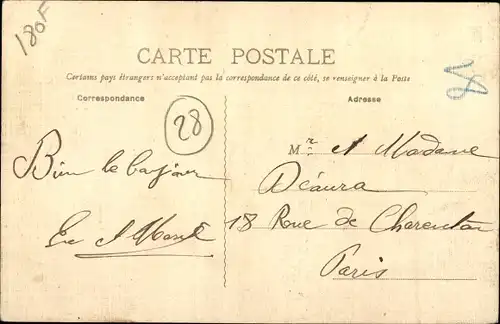 180F
CARTE POSTALE
Certains pays étrangers n'acceptant pas la correspondance de ce côté, se renseigner à la Poste
Correspondance
Adresse
28
Bien le bonjour
Mr et Madame
18 Rue de Charenton
Paris